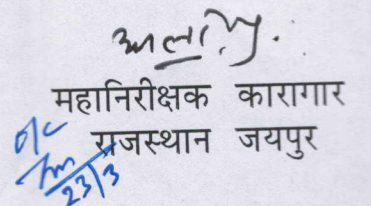 महानिरीक्षक कारागार
राजस्थान जयपुर
23/3